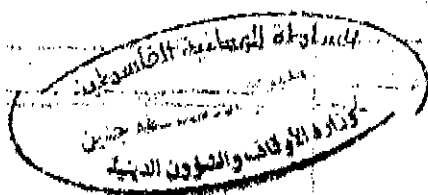 السلطة الوطنية الفلسطينية
جنين
وزارة الأوقاف والشؤون الدينية